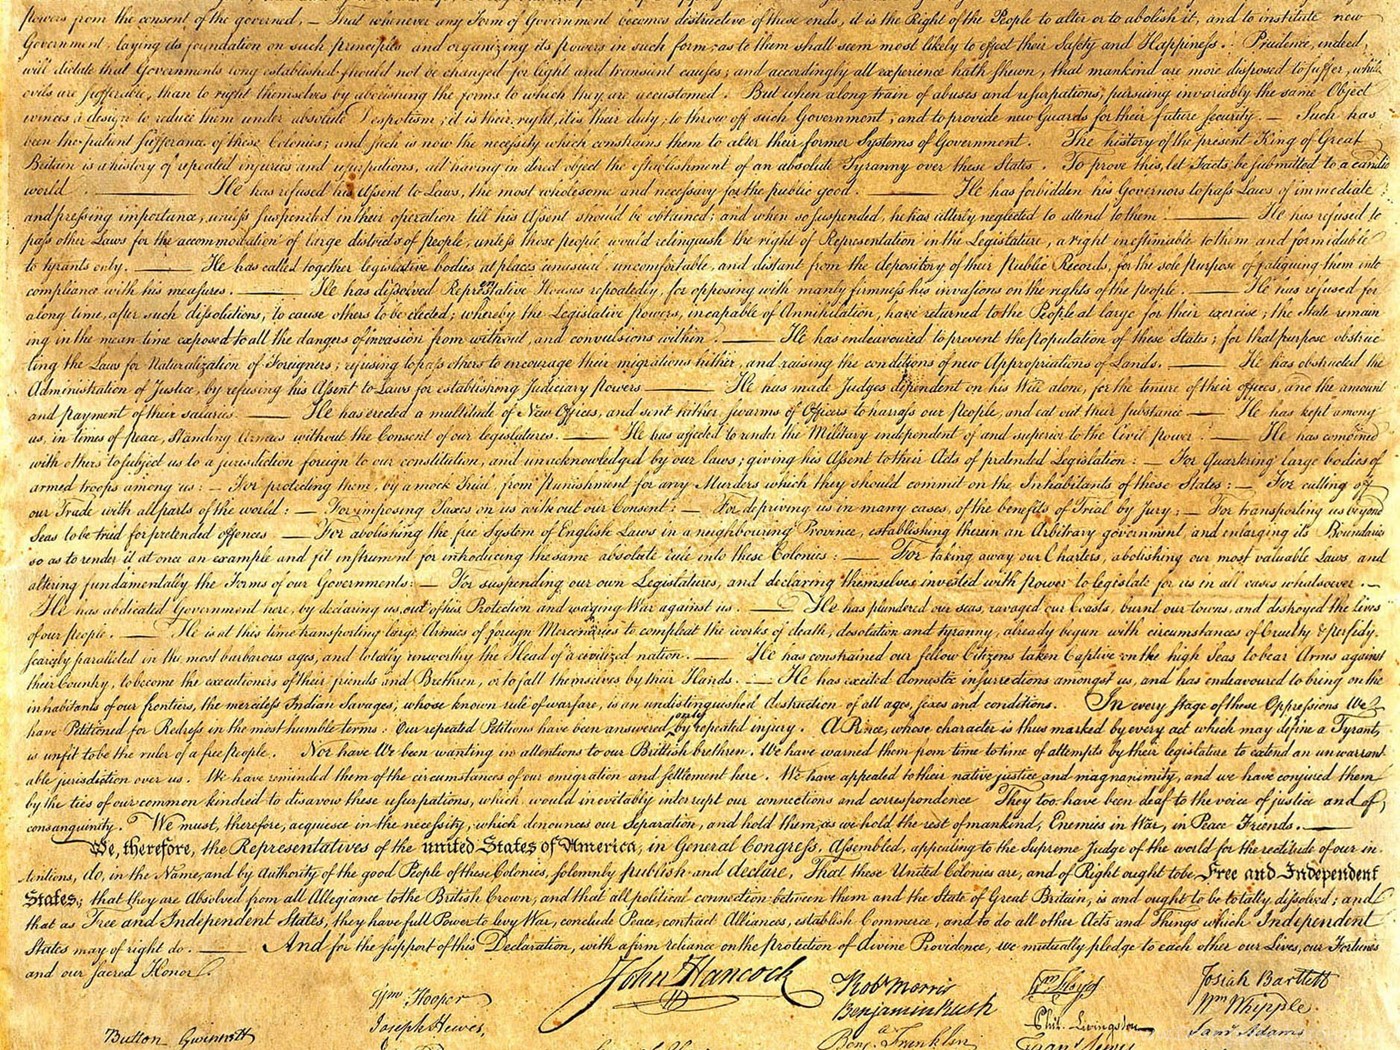 powers from the consent of the governed, — That whenever any Form of Government becomes destructive of these ends, it is the Right of the People to alter or to abolish it, and to institute new
Government, laying its foundation on such principles and organizing its powers in such form, as to them shall seem most likely to effect their Safety and Happiness. Prudence, indeed,
will dictate that Governments long established should not be changed for light and transient causes; and accordingly all experience hath shewn, that mankind are more disposed to suffer, while
evils are sufferable, than to right themselves by abolishing the forms to which they are accustomed. But when a long train of abuses and usurpations, pursuing invariably the same Object
evinces a design to reduce them under absolute Despotism, it is their right, it is their duty, to throw off such Government, and to provide new Guards for their future security. — Such has
been the patient sufferance of these Colonies; and such is now the necessity which constrains them to alter their former Systems of Government. The history of the present King of Great
Britain is a history of repeated injuries and usurpations, all having in direct object the establishment of an absolute Tyranny over these States. To prove this, let Facts be submitted to a candid
world. — He has refused his Assent to Laws, the most wholesome and necessary for the public good. — He has forbidden his Governors to pass Laws of immediate
and pressing importance, unless suspended in their operation till his Assent should be obtained; and when so suspended, he has utterly neglected to attend to them. — He has refused to
pass other Laws for the accommodation of large districts of people, unless those people would relinquish the right of Representation in the Legislature, a right inestimable to them and formidable
to tyrants only. — He has called together legislative bodies at places unusual, uncomfortable, and distant from the depository of their Public Records, for the sole purpose of fatiguing them into
compliance with his measures. — He has dissolved Representative Houses repeatedly, for opposing with manly firmness his invasions on the rights of the people. — He has refused for
a long time, after such dissolutions, to cause others to be elected; whereby the Legislative powers, incapable of Annihilation, have returned to the People at large for their exercise; the State remain
ing in the mean time exposed to all the dangers of invasion from without, and convulsions within. — He has endeavoured to prevent the population of these States; for that purpose obstruc
ting the Laws for Naturalization of Foreigners; refusing to pass others to encourage their migrations hither, and raising the conditions of new Appropriations of Lands. — He has obstructed the
Administration of Justice, by refusing his Assent to Laws for establishing Judiciary powers — He has made Judges dependent on his Will alone, for the tenure of their offices, and the amount
and payment of their salaries. — He has erected a multitude of New Offices, and sent hither swarms of Officers to harrass our people, and eat out their substance — He has kept among
us, in times of peace, Standing Armies without the Consent of our legislatures. — He has affected to render the Military independent of and superior to the Civil power. — He has combined
with others to subject us to a jurisdiction foreign to our constitution, and unacknowledged by our laws; giving his Assent to their Acts of pretended Legislation: — For Quartering large bodies of
armed troops among us: — For protecting them, by a mock Trial, from punishment for any Murders which they should commit on the Inhabitants of these States: — For cutting off
our Trade with all parts of the world: — For imposing Taxes on us without our Consent: — For depriving us in many cases, of the benefits of Trial by Jury: — For transporting us beyond
Seas to be tried for pretended offences — For abolishing the free System of English Laws in a neighbouring Province, establishing therein an Arbitrary government, and enlarging its Boundaries
so as to render it at once an example and fit instrument for introducing the same absolute rule into these Colonies: — For taking away our Charters, abolishing our most valuable Laws, and
altering fundamentally the Forms of our Governments: — For suspending our own Legislatures, and declaring themselves invested with power to legislate for us in all cases whatsoever. —
He has abdicated Government here, by declaring us out of his Protection and waging War against us. — He has plundered our seas, ravaged our Coasts, burnt our towns, and destroyed the lives
of our people. — He is at this time transporting large Armies of foreign Mercenaries to compleat the works of death, desolation and tyranny, already begun with circumstances of Cruelty & perfidy
scarcely paralleled in the most barbarous ages, and totally unworthy the Head of a civilized nation. — He has constrained our fellow Citizens taken Captive on the high Seas to bear Arms against
their Country, to become the executioners of their friends and Brethren, or to fall themselves by their Hands. — He has excited domestic insurrections amongst us, and has endeavoured to bring on the
inhabitants of our frontiers, the merciless Indian Savages, whose known rule of warfare, is an undistinguished destruction of all ages, sexes and conditions. In every stage of these Oppressions We
have Petitioned for Redress in the most humble terms: Our repeated Petitions have been answered only by repeated injury. A Prince, whose character is thus marked by every act which may define a Tyrant,
is unfit to be the ruler of a free people. Nor have We been wanting in attentions to our Brittish brethren. We have warned them from time to time of attempts by their legislature to extend an unwarrant
able jurisdiction over us. We have reminded them of the circumstances of our emigration and settlement here. We have appealed to their native justice and magnanimity, and we have conjured them
by the ties of our common kindred to disavow these usurpations, which, would inevitably interrupt our connections and correspondence They too have been deaf to the voice of justice and of
consanguinity. We must, therefore, acquiesce in the necessity, which denounces our Separation, and hold them, as we hold the rest of mankind, Enemies in War, in Peace Friends. —
We, therefore, the Representatives of the united States of America, in General Congress, Assembled, appealing to the Supreme Judge of the world for the rectitude of our in
tentions, do, in the Name, and by Authority of the good People of these Colonies, solemnly publish and declare, That these United Colonies are, and of Right ought to be Free and Independent
States; that they are Absolved from all Allegiance to the British Crown, and that all political connection between them and the State of Great Britain, is and ought to be totally dissolved; and
that as Free and Independent States, they have full Power to levy War, conclude Peace, contract Alliances, establish Commerce, and to do all other Acts and Things which Independent
States may of right do. — And for the support of this Declaration, with a firm reliance on the protection of divine Providence, we mutually pledge to each other our Lives, our Fortunes
and our sacred Honor.
John Hancock
Robt Morris
Wm Floyd
Josiah Bartlett
Wm Hooper
Benjamin Rush
Wm Whipple
Joseph Hewes,
Phil. Livingston
Saml Adams
Button Gwinnett
Benj. Franklin